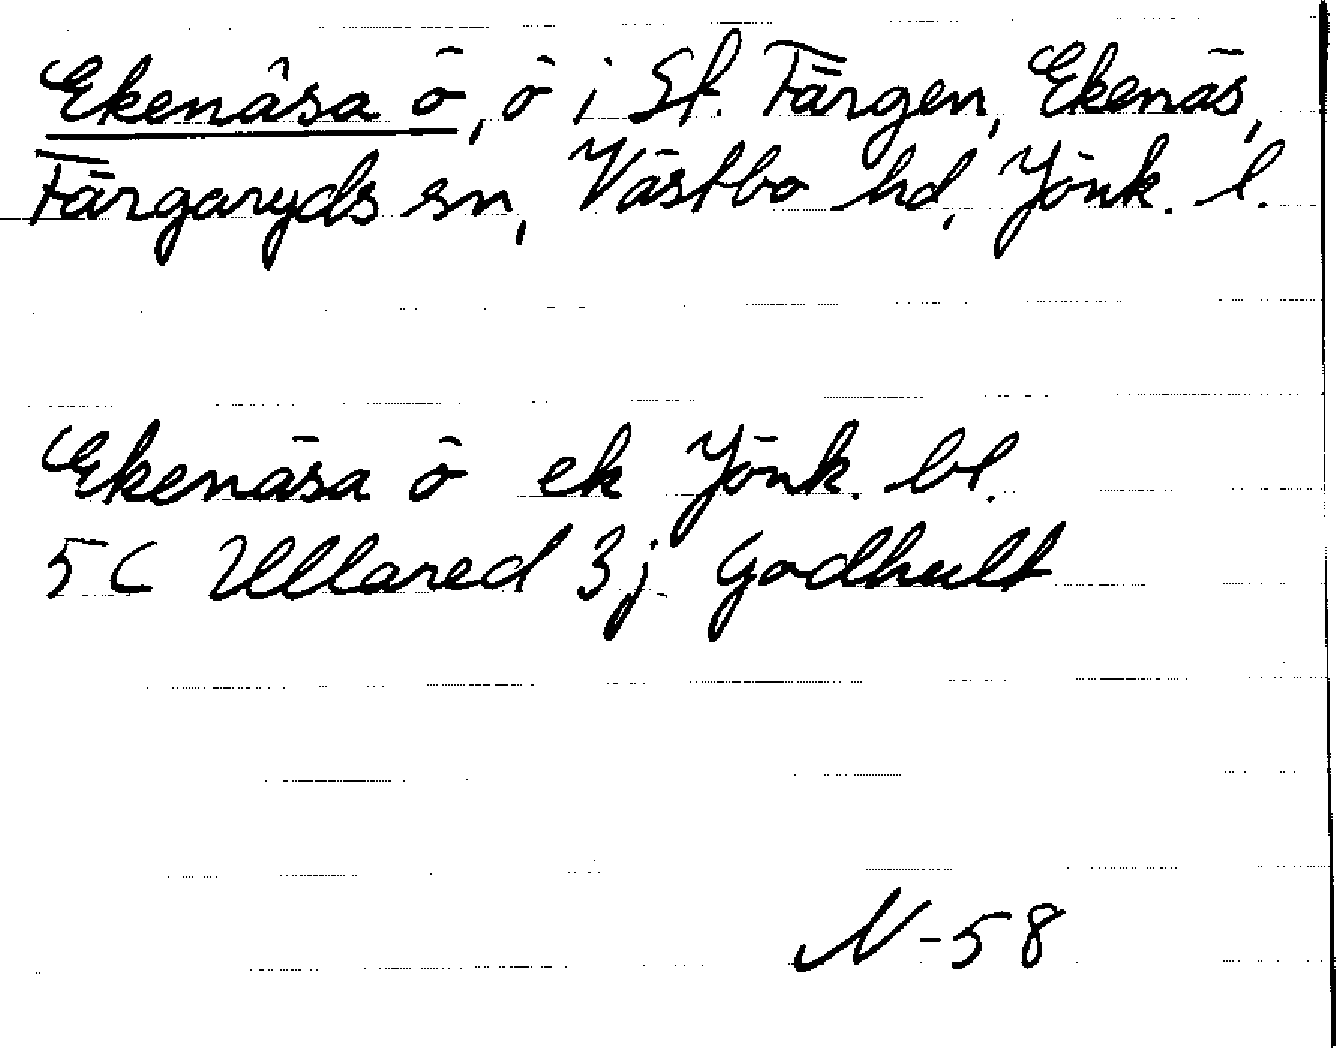 Ekenäsa ö, ö i St. Färgen, Ekenäs,
Färgaryds sn, Västbo hd, Jönk. l.
Ekenäsa ö ek Jönk. bl.
5C Ullared 3j Godhult
N-58